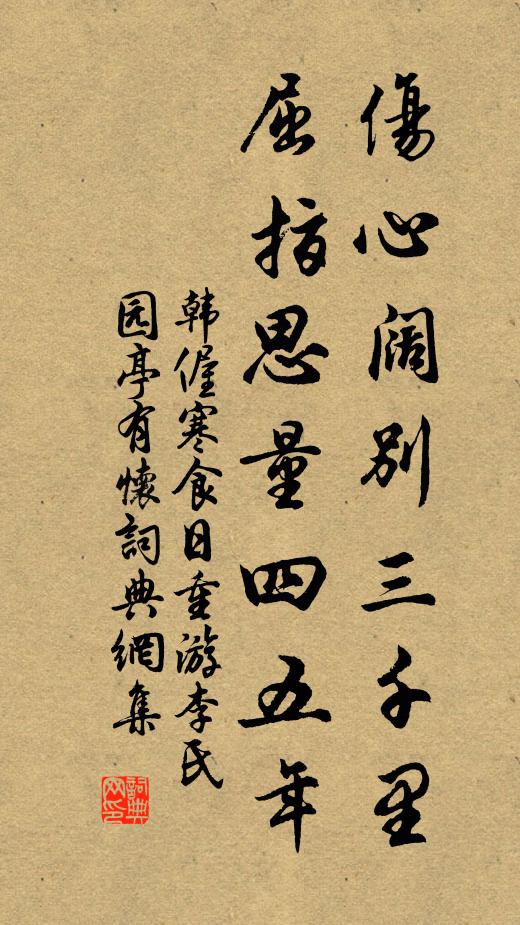 傷心阔別三千里
屈指思量四五年
韩偓寒食日重游李氏
园亭有懷詞典網集
詞典
网印